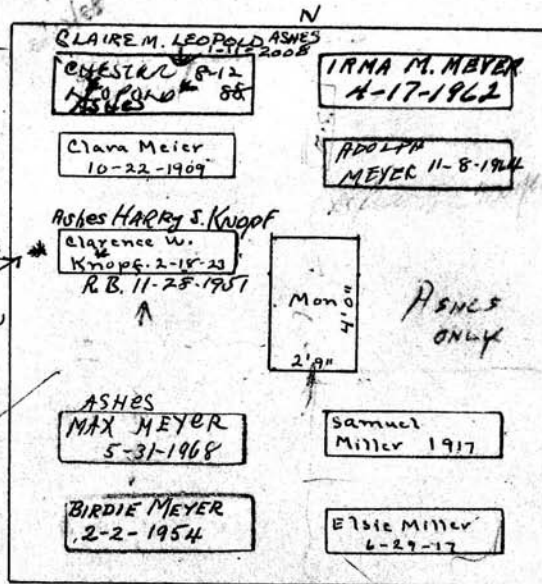 N
CLAIRE M. LEOPOLD ASHES
1-11-2008
CHESTER 8-12
LEOPOLD 88
ASHES
IRMA M. MEYER
4-17-1962
Clara Meier
10-22-1909
ADOLPH
MEYER 11-8-1964
Ashes HARRY S. KNOPF
Clarence W.
Knopf. 2-18-23
R.B. 11-28-1951
Mon
4'0"
2'9"
ASHES
ONLY
ASHES
MAX MEYER
5-31-1968
Samuel
Miller 1917
BIRDIE MEYER
2-2-1954
Elsie Miller
6-29-17